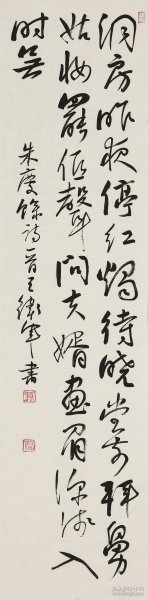 洞房昨夜停红烛待晓堂前拜舅
姑妆罢低声问夫婿画眉深浅入
时无
朱庆馀诗一首 王卫军书